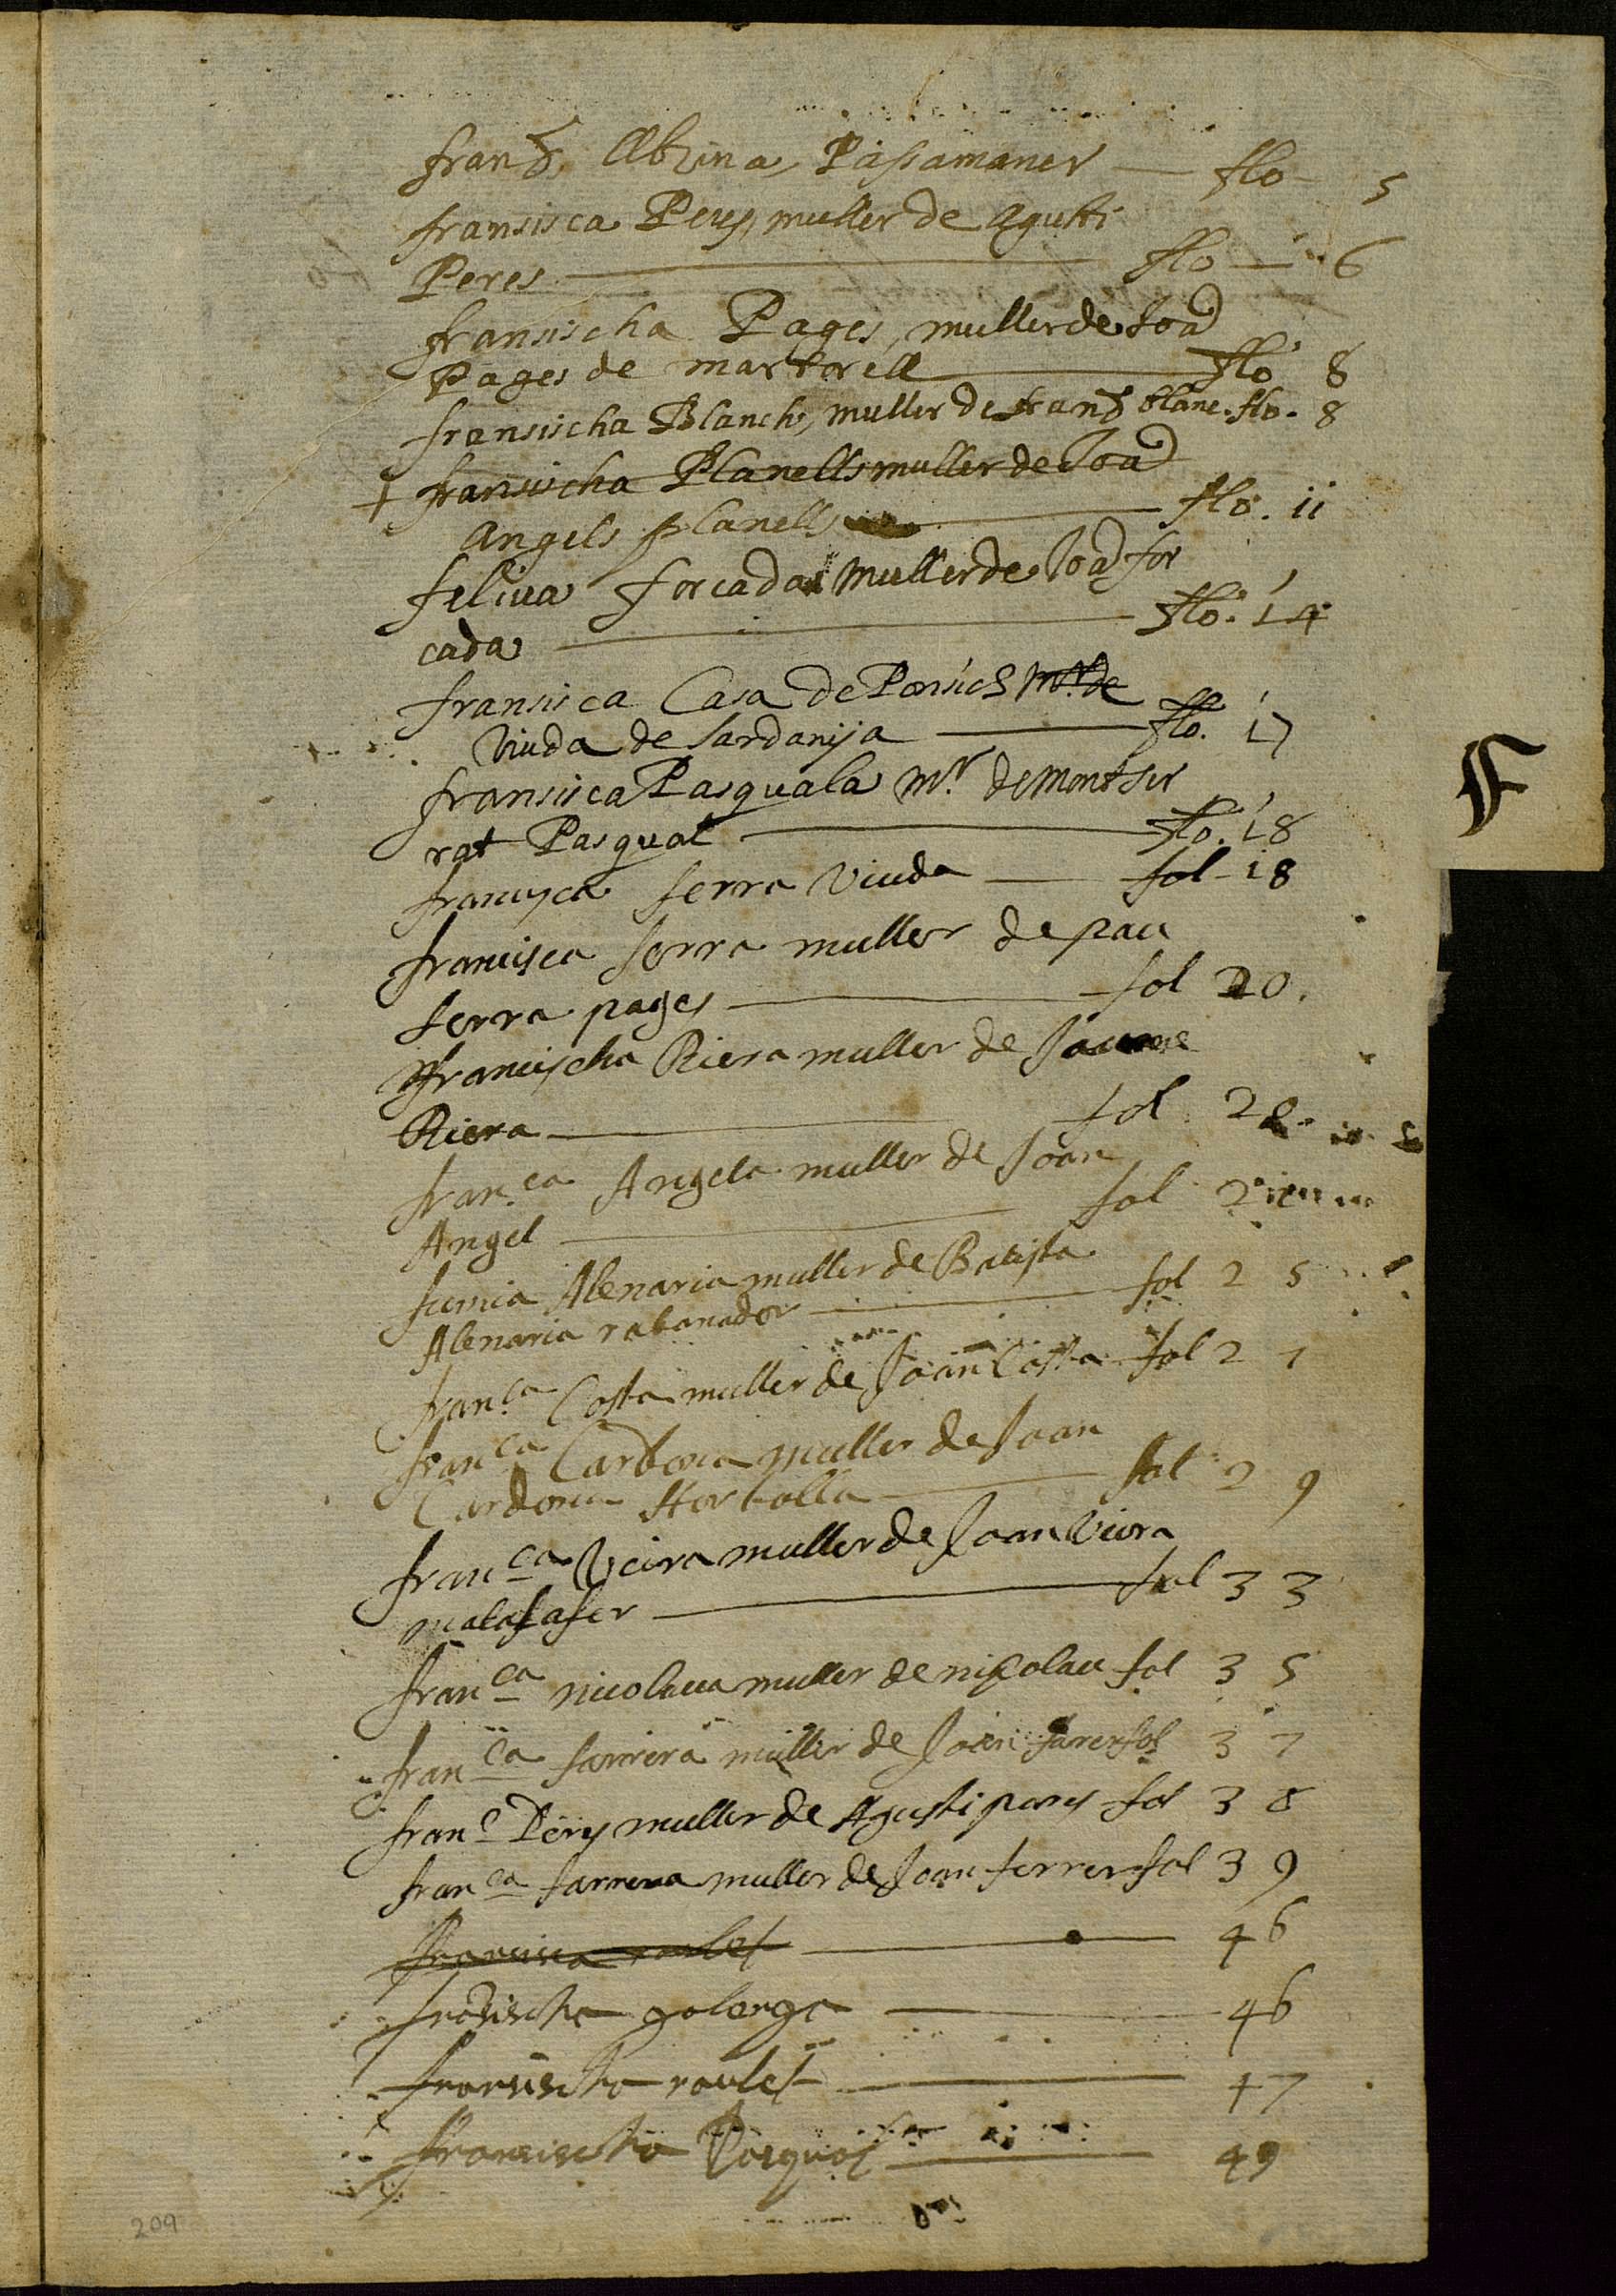 fran.ᶜʰ Alzina Passamaner flo 5
fransisca Peres, muller de Agusti
Peres flo 6
fransischa Pages, muller de Joā
Pages de martorell flo 8
fransischa Blanch, muller de franᶜʰ blanc. flo. 8
+ fransischa Planells muller de Joā
Angels planells flo. 11
feliua forcada muller de Joā for
cada flo. 14
fransisca Casa de Ponsich mʳ. de
Viuda de Sardanya flo. 17
fransisca Pasquala mʳ. de Montser
rat Pasqual flo. 18
francisca serra Viuda fol 18
francisca serra muller de pau
serra pages fol 20.
francischa Riera muller de Jaume
Riera fol 2
fran.ᶜᵃ Angela muller de Joan
Angel fol 2
Alenaria muller de Batista
Alenaria rabanador fol 25
franᶜᵃ Costa muller de Joan Costa fol 2
franᶜᵃ Cardona muller de Joan
Cardona Hortolla fol 29
franᶜᵃ Vieira muller de Joan Viera
matalafer fol 33
franᶜᵃ nicolaua muller de nicolau fol 35
franᶜᵃ muller de Joan fol 37
franᶜ Perys muller de Agusti perys fol 38
franᶜᵃ farrera muller de Joan ferrer fol 39
Francisca roulet 46
fransischa golarga 46
fransischa roulet 47
fransischa Pasqual 49
F
209